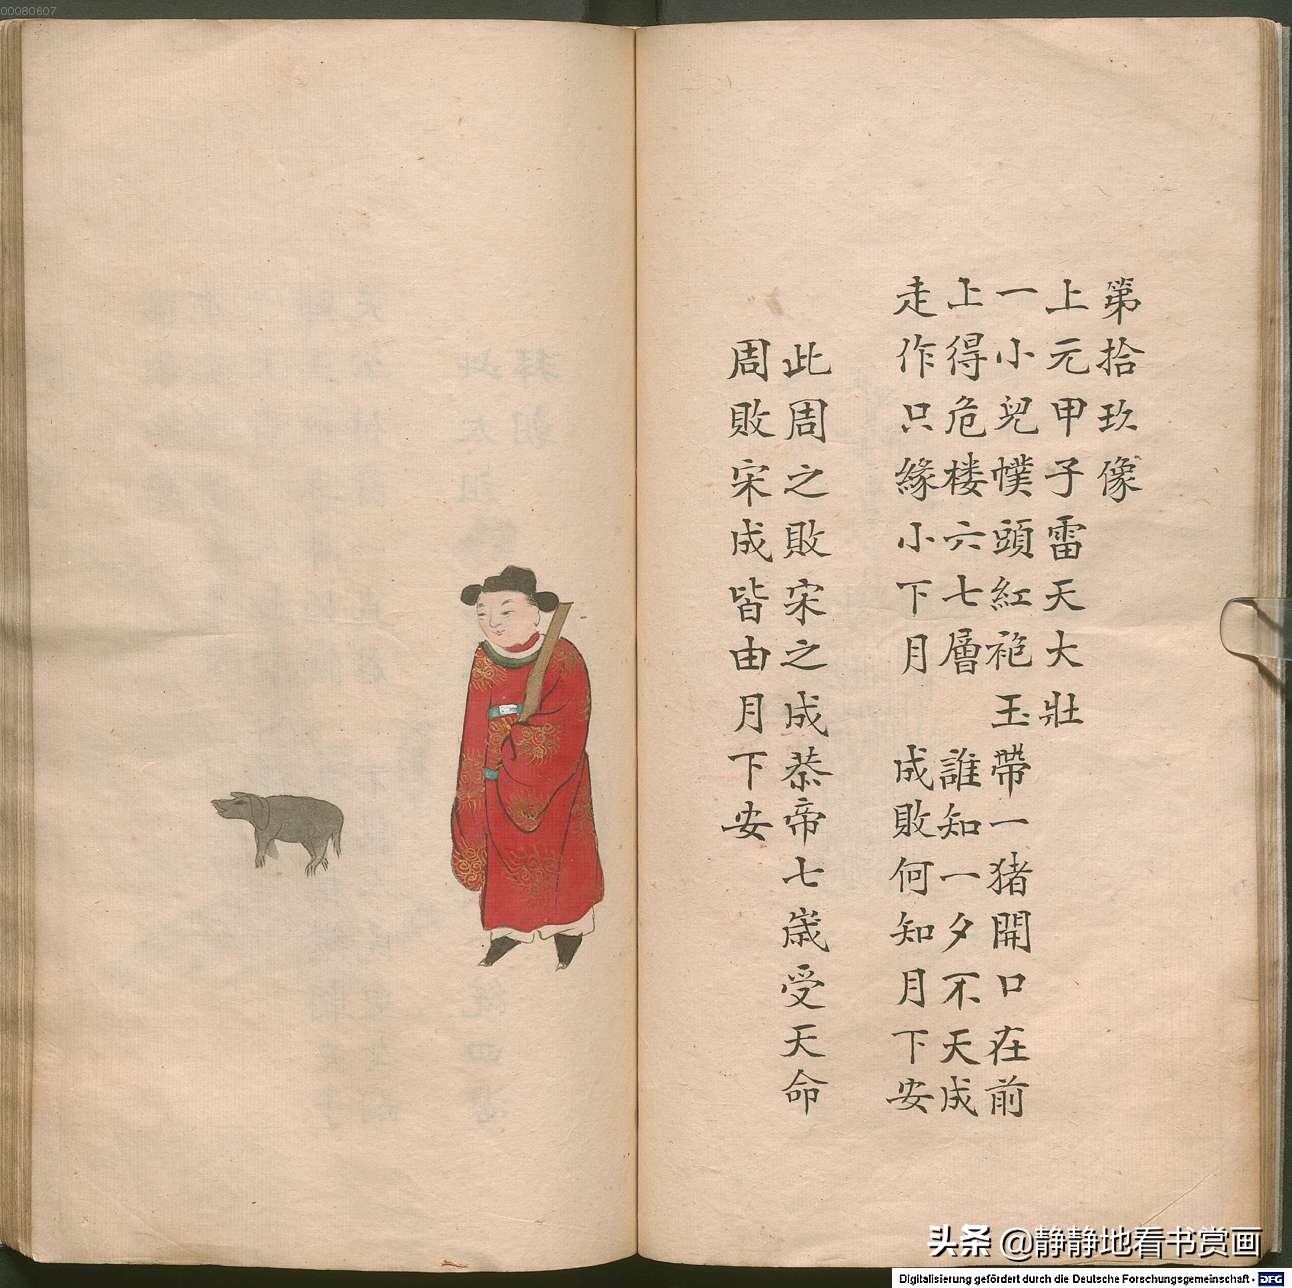 00080607
第拾玖像
上元甲子雷天大壯
一小兒幞頭紅袍玉帶一猪開口在前
上得危楼六七層　誰知一夕不天成
走作只緣小下月　成敗何知月下安
此周之敗宋之成恭帝七嵗受天命
周敗宋成皆由月下安
头条 @静静地看书赏画
Digitalisierung gefördert durch die Deutsche Forschungsgemeinschaft - DFG